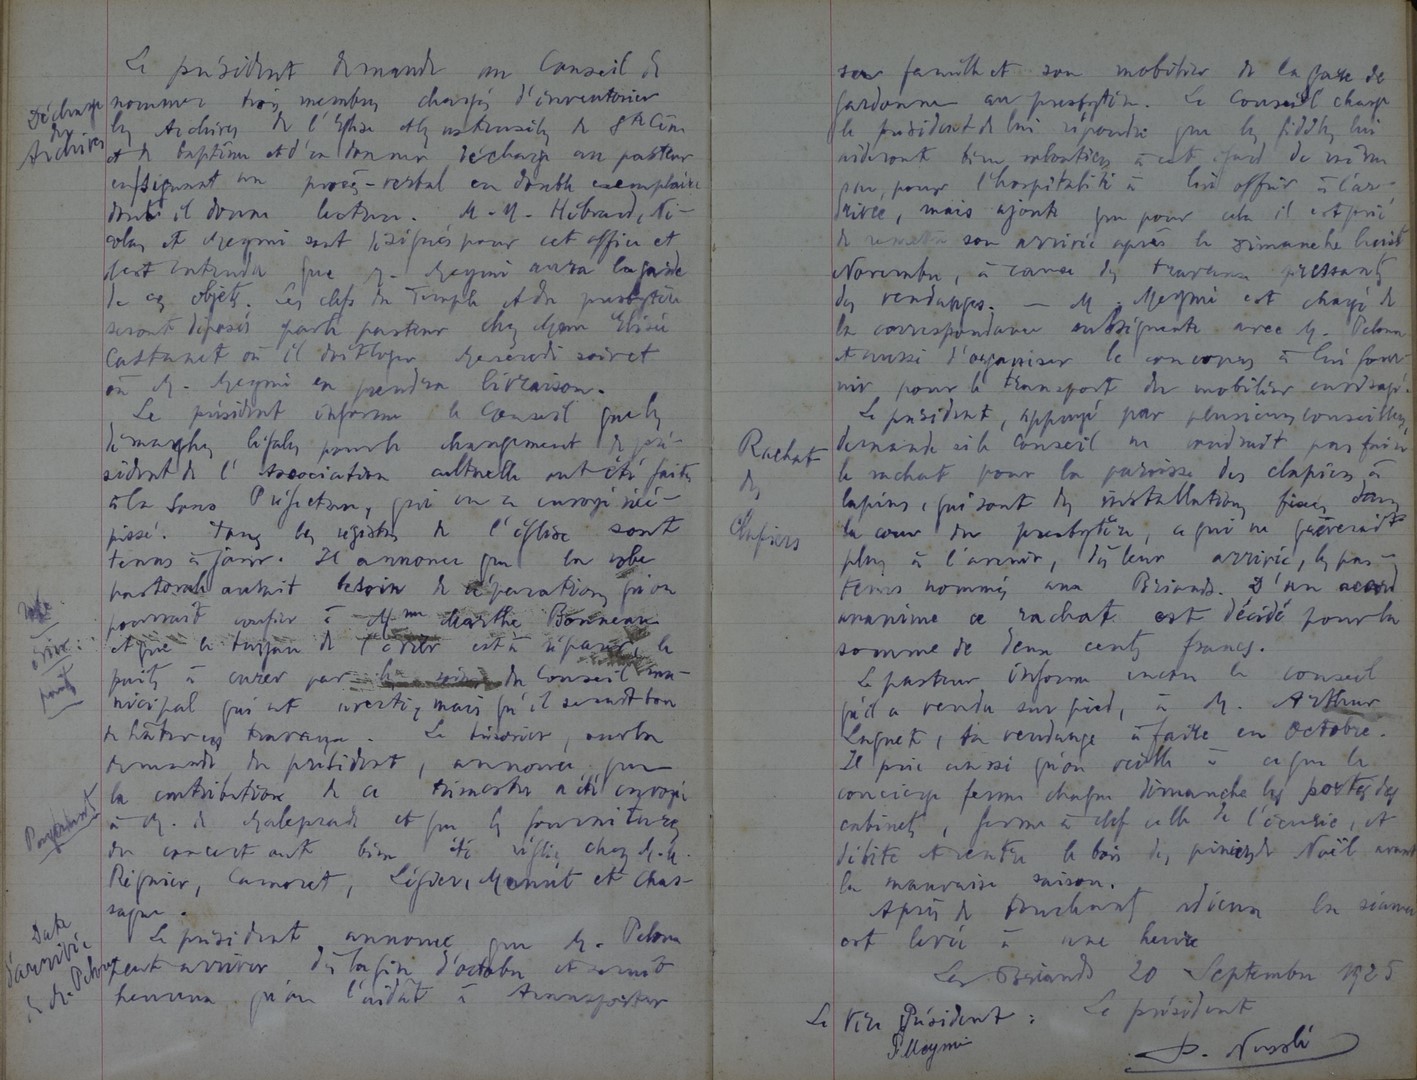 Le président demande au Conseil de
Décharge
des
Archives
nommer trois membres chargés d'inventorier
les Archives de l'Eglise et les ustensiles de Ste Cène
et de baptême et d'en donner décharge au pasteur
en signant un procès-verbal en double exemplaire
dont il donne lecture. M.M. Hébrard, Ni-
colas et Meymi sont désignés pour cet office et
il est entendu que M. Meymi aura la garde
de ces objets. Les clefs du Temple et du presbytère
seront déposées par le pasteur chez Mme Elisée
Castanet où il doit loger Mercredi soir et
où M. Meymi en prendra livraison.
Le président informe le Conseil que les
démarches légales pour le changement de pré-
sident de l'Association cultuelle ont été faites
à la Sous Préfecture, qui en a envoyé récé-
pissé. Tous les registres de l'église sont
tenus à jour. Il annonce que la robe
pastorale aurait besoin de réparations qu'on
pourrait confier à Mme Marthe Bonneau
et que le tuyau de l'évier est à réparer, le
puits à curer par le soin du Conseil mu-
nicipal qui est averti, mais qu'il serait bon
de hâter ces travaux. Le trésorier, sur la
demande du président, annonce que
la contribution de ce trimestre a été envoyée
à M. de Maleprade et que les fournitures
du concert ont bien été réglées chez M.M.
Régnier, Camoret, Légier, et Chas-
sagne.
Robe
évier :
puits
Payement
Date
d'arrivée
de M. Pelon
Le président annonce que M. Pelon
peut arriver dès la fin d'octobre et serait
heureux qu'on l'aidât à transporter
sa famille et son mobilier de la gare de
Gardonne au presbytère. Le Conseil charge
le président de lui répondre que les fidèles lui
aideront bien volontiers à cet égard de même
que, pour l'hospitalité à lui offrir à l'ar-
rivée, mais ajoute que pour cela il est prié
de remettre son arrivée après le dimanche huit
Novembre, à cause des travaux pressants
des vendanges. — M. Meymi est chargé de
la correspondance avec M. Pelon
et aussi d'organiser le concours à lui four-
nir pour le transport du mobilier envisagé.
Rachat
des
Clapiers
Le président, appuyé par plusieurs conseillers,
demande si le Conseil ne voudrait pas faire
le rachat pour la paroisse des clapiers à
lapins, qui sont des installations fixes dans
la cour du presbytère, ce qui ne grèverait
plus à l'avenir, dès leur arrivée, les pas-
teurs nommés aux Briands. D'un accord
unanime ce rachat est décidé pour la
somme de deux cents francs.
Le pasteur informe encore le conseil
qu'il a vendu sur pied, à M. Arthur
sa vendange à faire en Octobre.
Il prie aussi qu'on veille à ce que le
concierge ferme chaque dimanche les portes des
cabinets, ferme à clef celle de l'écurie, et
débite et rentre le bois des pins de Noël avant
la mauvaise saison.
Après de touchants adieux la séance
est levée à une heure
Les Briands 20 Septembre 1925
Le Vice Président : Le président
P. Meymi